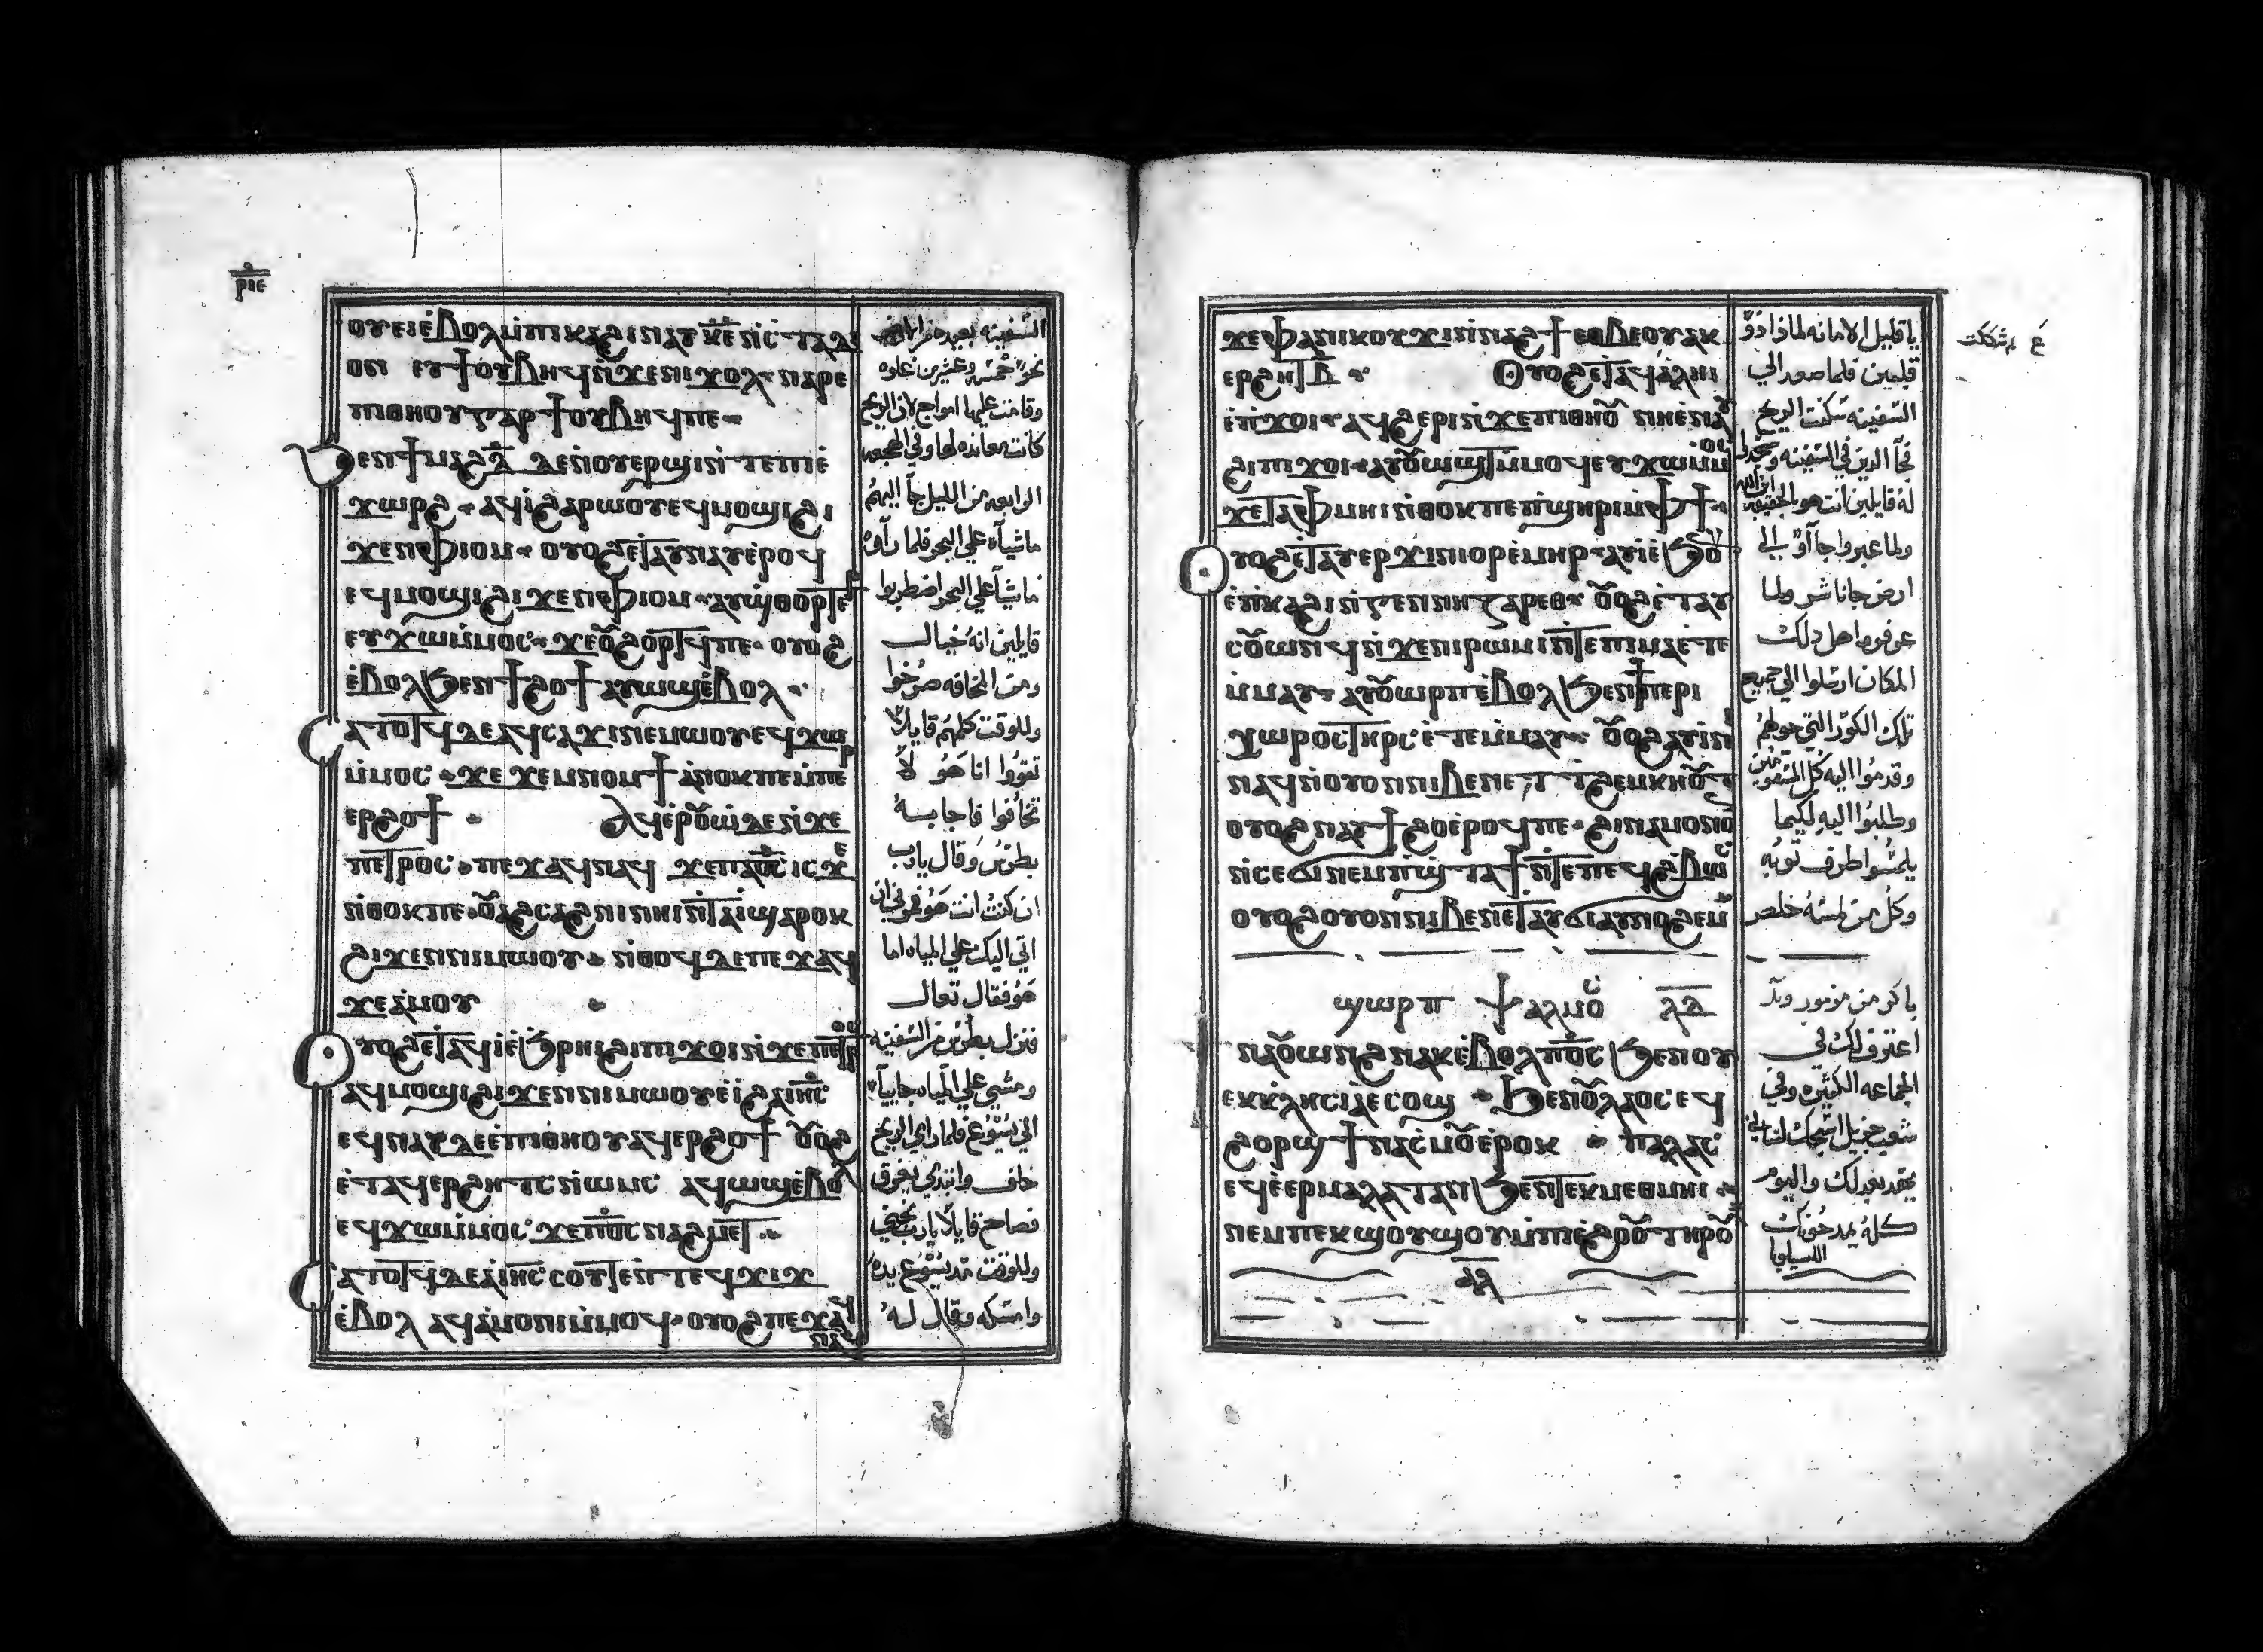 ⲣⲓⲉ
ⲟⲩⲉⲓ ⲉ̀ⲃⲟⲗ ⲙ̀ⲡⲓⲕⲁϩⲓ ⲛⲁⲩ ⲕⲉ ⲛ̀ⲥ ⲧⲁⲇⲓ
ⲟⲛ ⲉⲩϯⲟⲩⲃⲏϥ ⲛ̀ϫⲉⲛⲓϫⲟⲗ ⲛⲁⲣⲉ
ⲡⲓⲑⲏⲟⲩ ⲅⲁⲣ ϯⲟⲩⲃⲏϥⲡⲉ
ϧⲉⲛϯⲙⲁϩⲇ̄ ⲇⲉⲛⲟⲩⲉⲣϣⲓⲛ̀ⲧⲉⲡⲓⲉ̀
ϫⲱⲣϩ ⲁϥⲓ̀ϩⲁⲣⲱⲟⲩ ⲉϥⲙⲟϣⲓϩⲓ
ϫⲉⲛⲫⲓⲟⲙ ⲟⲩⲟϩ ⲉ̀ⲧⲁⲩⲛⲁⲩⲉ̀ⲣⲟϥ
ⲉϥⲙⲟϣⲓϩⲓϫⲉⲛⲫⲓⲟⲙ ⲁⲩϣⲑⲟⲣⲧⲉⲣ
ⲉⲩϫⲱⲙ̀ⲙⲟⲥ ϫⲉⲟⲩϩⲟⲣⲧϥⲡⲉ ⲟⲩⲟϩ
ⲉ̀ⲃⲟⲗϧⲉⲛϯϩⲟϯ ⲁⲩⲱϣⲉ̀ⲃⲟⲗ
ⲥⲁⲧⲟⲧϥ ⲇⲉ ⲁϥⲥⲁϫⲓⲛⲉⲙⲱⲟⲩ ⲉϥϫⲱ
ⲙ̀ⲙⲟⲥ ϫⲉ ϫⲉⲙⲛⲟⲙϯ ⲁ̀ⲛⲟⲕⲡⲉ ⲙ̀ⲡⲉⲣ
ⲉⲣϩⲟϯ ⲁϥⲉⲣⲟⲩⲱ̀ ⲇⲉ ⲛ̀ϫⲉ
ⲡⲉⲧⲣⲟⲥ ⲡⲉϫⲁϥⲛⲁϥ ϫⲉⲡⲁⲟ̅ⲥ̅ ⲓⲥϫⲉ
ⲛ̀ⲑⲟⲕⲡⲉ ⲟⲩⲁϩⲥⲁϩⲛⲓ ⲛⲏⲓ ⲛ̀ⲧⲁⲓ̀ ϣⲁⲣⲟⲕ
ϩⲓϫⲉⲛⲛⲓⲙⲱⲟⲩ ⲛ̀ⲑⲟϥⲇⲉ ⲡⲉϫⲁϥ
ϫⲉⲁ̀ⲙⲟⲩ
ⲟⲩⲟϩ ⲉ̀ⲧⲁϥⲓ̀ⲉ̀ϧⲣⲏⲓ ϩⲓⲡⲓϫⲟⲓ ⲛ̀ϫⲉⲡⲉⲧⲣⲟⲥ
ⲁϥⲙⲟϣⲓϩⲓϫⲉⲛⲛⲓⲙⲱⲟⲩ ⲉ̀ⲓ̀ϩⲁ ⲓⲏⲥ
ⲉϥⲛⲁⲩⲇⲉ ⲉ̀ⲡⲓⲑⲏⲟⲩ ⲁϥⲉⲣϩⲟϯ ⲟⲩⲟϩ
ⲉ̀ⲧⲁϥⲉⲣϩⲏⲧⲥ ⲛ̀ⲱⲙⲥ ⲁϥⲱϣⲉ̀ⲃⲟⲗ
ⲉϥϫⲱⲙ̀ⲙⲟⲥ ϫⲉⲡⲟ̅ⲥ̅ ⲛⲁϩⲙⲉⲧ
ⲥⲁⲧⲟⲧϥⲇⲉ ⲁ̀ⲓⲏⲥ ⲥⲟⲩⲧⲉⲛⲧⲉϥϫⲓϫ
ⲉ̀ⲃⲟⲗ ⲁϥⲁ̀ⲙⲟⲛⲓⲙ̀ⲙⲟϥ ⲟⲩⲟϩ ⲡⲉϫⲁϥ
ⲛⲁϥ
السفينه بعيده من الارض
نحو خمسه وعشرين غلوه
وقامت عليها امواج لان الريح
كانت معانده لها وفي الهجعه
الرابعه من الليل جآ اليهم
ماشيآ علي البحر فلما رآوه
ماشيآ علي البحر اضطربوا
قايلين انه خيال
ومن المخافه صرخوا
وللوقت كلمهم قايلاً
تقووا انا هو لا
تخافوا فاجابه
بطرس وقال يارب
ان كنت انت هو فمرني ان
اتي اليك علي المياه اما
هو فقال تعال
فنزل بطرس من السفينه
ومشي علي المياه جاييآ
الي يسوع فلما راي الريح
خاف وابتدي يغرق
فصاح قايلا يارب نجني
وللوقت مد يسوع يده
وامسكه وقال له
ϫⲉⲫⲁⲡⲓⲕⲟⲩϫⲓⲛ̀ⲛⲁϩϯ ⲉⲑⲃⲉⲟⲩ ⲁⲕ
ⲉⲣϩⲏⲧⲃ̄ ⲟⲩⲟϩ ⲉ̀ⲧⲁϥⲁ̀ⲗⲏⲓ
ⲉ̀ⲡⲓϫⲟⲓ ⲁϥϩⲉⲣⲓ ⲛ̀ϫⲉⲡⲓⲑⲏⲟⲩ ⲛⲏⲉ̀ⲛⲁⲩ
ϩⲓⲡⲓϫⲟⲓ ⲁⲩⲟⲩⲱϣⲧ ⲙ̀ⲙⲟϥ ⲉⲩϫⲱⲙ̀ⲙⲟⲥ
ϫⲉⲧⲁⲫⲙⲏⲓ ⲛ̀ⲑⲟⲕⲡⲉ ⲡ̀ϣⲏⲣⲓⲙ̀ⲫϯ
ⲟⲩⲟϩ ⲉ̀ⲧⲁⲩⲉⲣϫⲓⲛⲓⲟⲣ ⲉ̀ⲙⲏⲣ ⲁⲩⲓ̀ ⲉ̀ϧⲟⲩⲛ
ⲉ̀ⲡⲕⲁϩⲓ ⲛ̀ⲅⲉⲛⲛⲏⲥⲁⲣⲉⲑ ⲟⲩⲟϩ ⲉ̀ⲧⲁⲩ
ⲥⲟⲩⲱⲛϥ ⲛ̀ϫⲉⲛⲓⲣⲱⲙⲓ ⲛ̀ⲧⲉⲡⲓⲙⲁⲉ̀ⲧⲉ
ⲙ̀ⲙⲁⲩ ⲁⲩⲟⲩⲱⲣⲡ ⲉ̀ⲃⲟⲗϧⲉⲛϯⲡⲉⲣⲓ
ⲭⲱⲣⲟⲥ ⲧⲏⲣⲥ ⲉ̀ⲧⲉⲙ̀ⲙⲁⲩ ⲟⲩⲟϩ ⲁⲩⲓ̀ⲛⲓ
ⲛⲁϥ ⲛ̀ⲟⲩⲟⲛⲛⲓⲃⲉⲛ ⲉⲧⲧϩⲉⲙⲕⲏⲟⲩⲧ
ⲟⲩⲟϩ ⲛⲁⲩϯϩⲟ ⲉ̀ⲣⲟϥⲡⲉ ϩⲓⲛⲁ ⲙⲟⲛⲟⲛ
ⲛ̀ⲥⲉϭⲓⲛⲉⲙ ⲡ̀ϣⲧⲁϯ ⲛ̀ⲧⲉⲡⲉϥϩ̀ⲃⲱⲥ
ⲟⲩⲟϩ ⲟⲩⲟⲛⲛⲓⲃⲉⲛ ⲉⲧⲁⲩϭⲓ ⲁⲩⲛⲟϩⲉⲙ
ϣⲱⲣⲡ ⲯⲁⲗⲙⲟⲥ ⲗⲇ
ⲛⲁⲟⲩⲱⲛϩ ⲛⲁⲕⲉ̀ⲃⲟⲗ ⲡⲟ̅ⲥ̅ ϧⲉⲛⲟⲩ
ⲉⲕⲕⲗⲏⲥⲓⲁ̀ ⲉⲥⲟϣ ϧⲉⲛⲟⲩⲗⲁⲟⲥ ⲉϥ
ϩⲟⲣϣ ϯⲛⲁⲥ̀ⲙⲟⲩ ⲉ̀ⲣⲟⲕ ⲡⲁⲗⲁⲥ
ⲉϥⲉ̀ⲉⲣⲙⲁⲗⲁⲧⲁⲛ ϧⲉⲛⲧⲉⲕⲙⲉⲑⲙⲏⲓ
ⲛⲉⲙ ⲡⲉⲕϣⲟⲩϣⲟⲩ ⲙ̀ⲡⲓⲉ̀ϩⲟⲟⲩ ⲧⲏⲣⲟⲩ
ⲁⲗ
يا قليل الامانه لماذا ذو
قلبين فلما صعد الي
السفينه سكنت الريح
فجآ الذين في السفينه وسجدوا
له قايلين انت هو بالحقيقه ابن الله
ولما عبروا جآ آوا الي
ارض جاناشر ولما
عرفوه اهل ذلك
المكان ارسلوا الي جميع
تلك الكور التي حولهم
وقدموا اليه كل المسقومين
وطلبوا اليه لكيما
يلمسوا طرف ثوبه
وكل من لمسه خلص
باكر من مزمور
اعترف لك في
الجماعه الكثيره وفي
شعب جزيل اسبحك لساني
بعدلك واليوم
كله بمدحونك
الليلويا